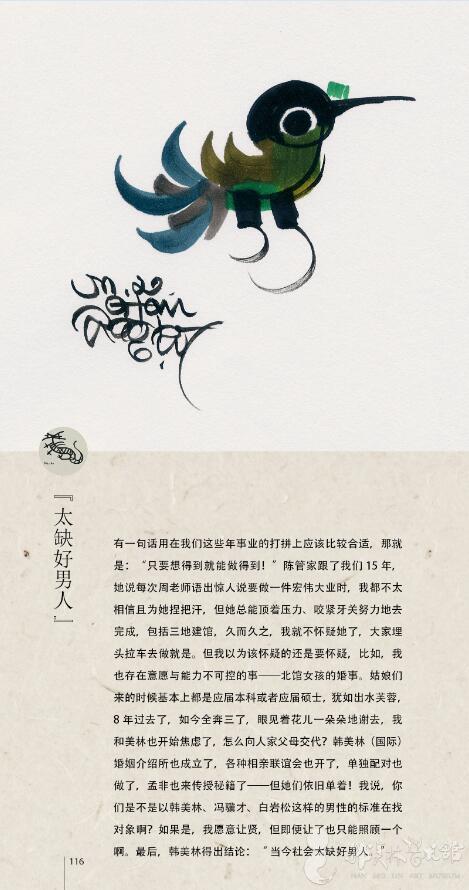 『太缺好男人』
有一句话用在我们这些年事业的打拼上应该比较合适，那就
是：“只要想得到就能做得到！”陈管家跟了我们 15 年，
她说每次周老师语出惊人说要做一件宏伟大业时，我都不太
相信且为她捏把汗，但她总能顶着压力、咬紧牙关努力地去
完成，包括三地建馆，久而久之，我就不怀疑她了，大家埋
头拉车去做就是。但我以为该怀疑的还是要怀疑，比如，我
也存在意愿与能力不可控的事——北馆女孩的婚事。姑娘们
来的时候基本上都是应届本科或者应届硕士，犹如出水芙蓉，
8 年过去了，如今全奔三了，眼见着花儿一朵朵地谢去，我
和美林也开始焦虑了，怎么向人家父母交代？韩美林（国际）
婚姻介绍所也成立了，各种相亲联谊会也开了，单独配对也
做了，孟非也来传授秘籍了——但她们依旧单着！我说，你
们是不是以韩美林、冯骥才、白岩松这样的男性的标准在找
对象啊？如果是，我愿意让贤，但即便让了也只能照顾一个
啊。最后，韩美林得出结论：“当今社会太缺好男人。”
116
HAN MEI LIN ART MUSEUM